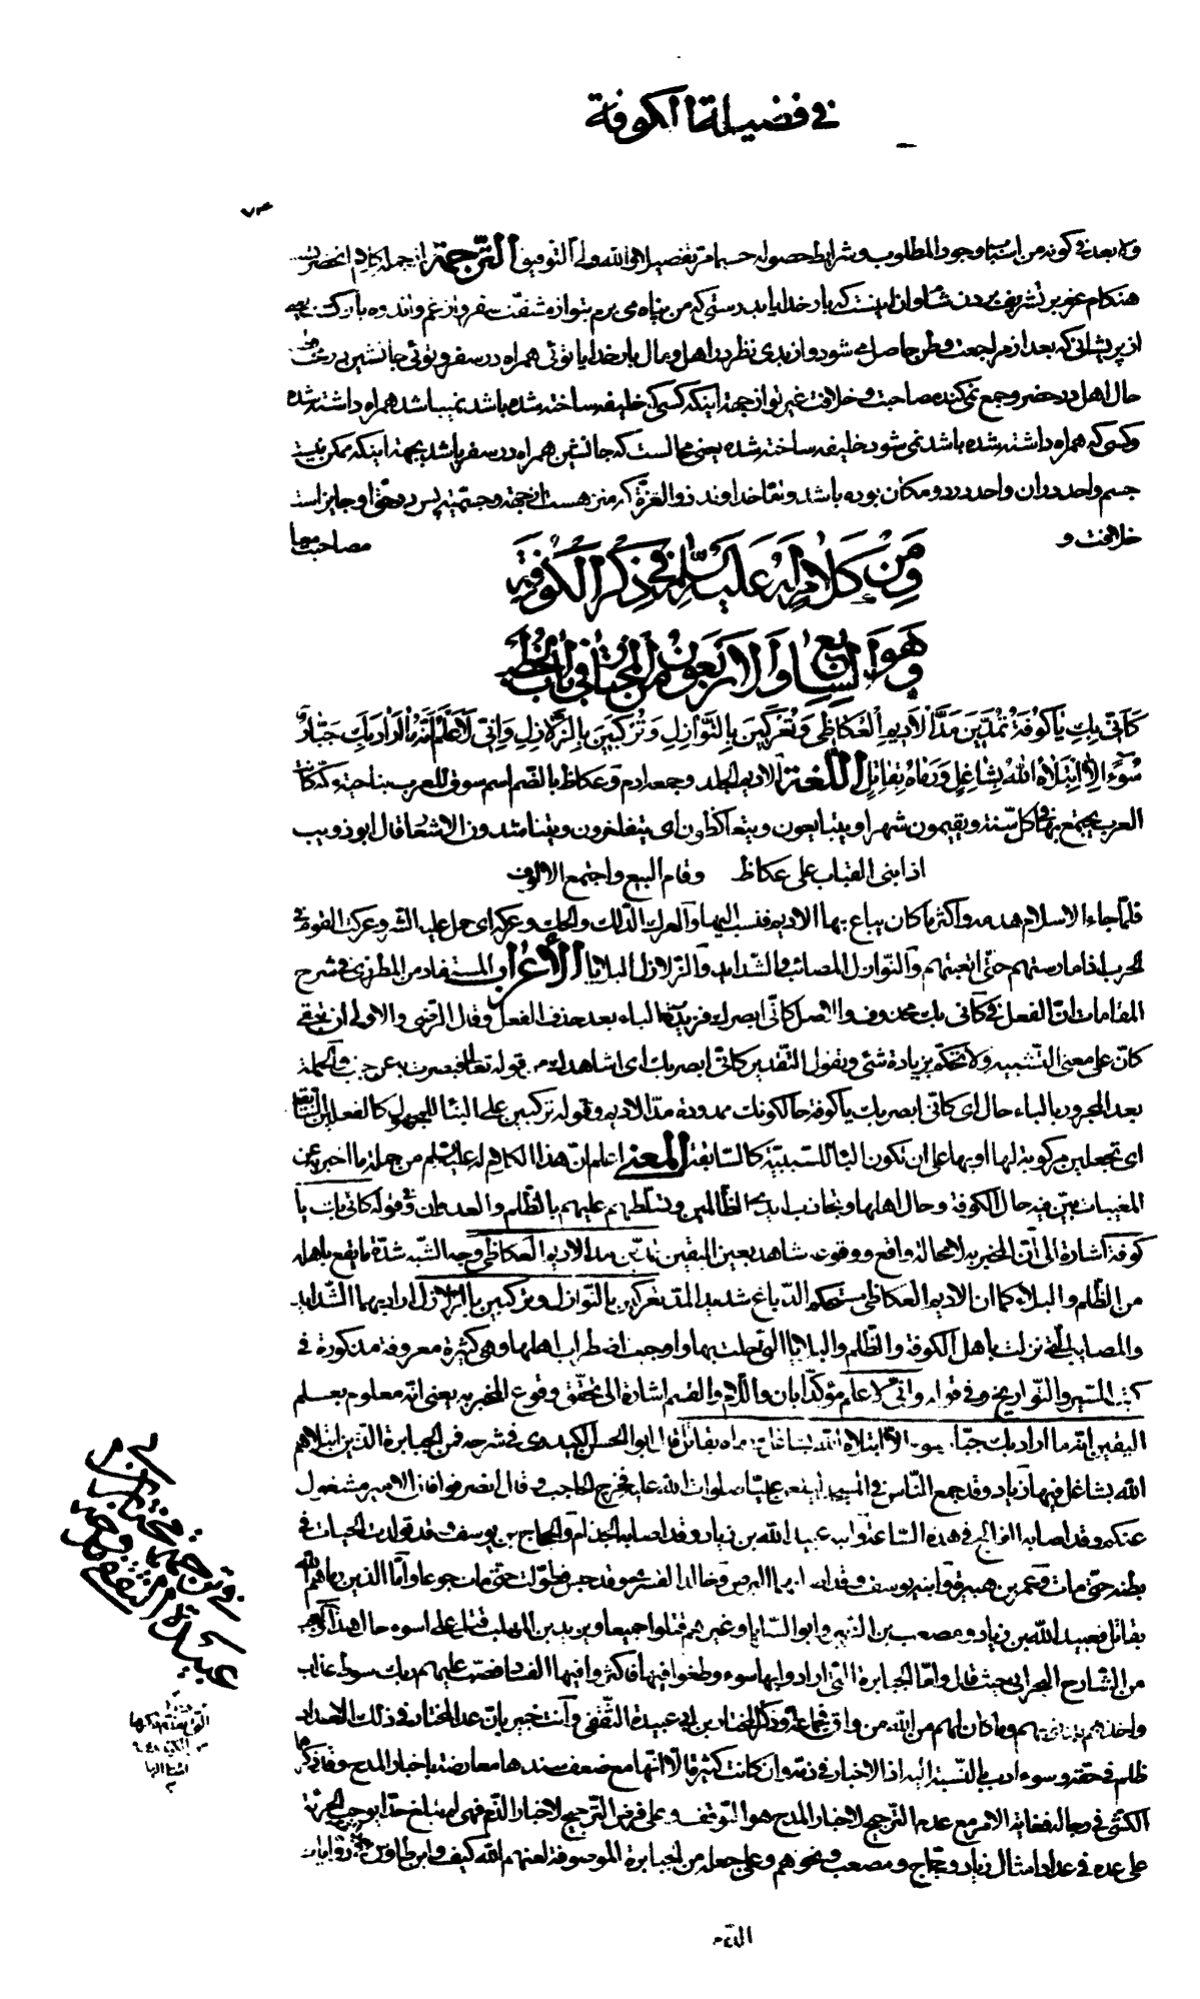 في فضيلة الكوفة
ولا بعد في كونه من اسباب وجود المطلوب وشرايط حصوله حسبما مر تفصيلا والله ولى التوفيق الترجمة از جمله كلام انحضرتست
هنكام عزم بر تشريف بردن شام وان اينست كه بار خدايا بدرستى كه من پناه مى برم بتو از مشقت سفر و از غم و اندوه بازكشتن يعنى
از پريشانى كه بعد از مراجعت وطن حاصل مى شود و از بدى نظر در اهل و مال بار خدايا توئى همراه در سفر و توئى جانشين در
حال اهل در حضر و جمع نمى كند مصاحبت و خلافت غير تو از جهة اينكه كسى كه خليفه ساخته شده باشد نميباشد همراه داشته شده
و كسى كه همراه داشته شده باشد نمى شود خليفه ساخته شده يعنى محالست كه جانشين همراه در سفر باشد بجهة اينكه ممكن نيست
جسم واحد در ان واحد در دو مكان بوده باشد و خداوند ذو العزة كه منزه است از جهة و جسمية پس در حق او جايز است
خلافت و مصاحبت معا
ومن كلام له عليه السلم في ذكر الكوفة
وهو السابع والاربعون من المختار في باب الخطب
كأني بك يا كوفة تمدين مد الاديم العكاظي وتعركين بالنوازل وتركبين بالزلازل واني لاعلم انه ما اراد بك جبار
سوءا الا ابتلاه الله بشاغل ورماه بقاتل اللغة الاديم الجلد وجمعه ادم وعكاظ بالضم اسم سوق للعرب بناحية مكة كانت
العرب يجتمع بها في كل سنة ويقيمون شهرا ويتبايعون ويتعاكظون اى يتفاخرون ويتناشدون الاشعار قال ابو ذويب
اذا بنى القباب على عكاظ وقام البيع واجتمع الالوف
فلما جاء الاسلام هدمه واكثر ما كان يباع بها الاديم فنسب اليها والعرك الدلك والحك وعركه اى حمل عليه الشر وعرك القوم في
الحرب اذا مارستهم حتى اتعبتهم والنوازل المصائب والشدايد والزلازل البلايا الاعراب المستفاد من المطرزى في شرح
المقامات ان الفعل في كأني بك محذوف والاصل كأني ابصرك فزيدت الباء بعد حذف الفعل وقال الرضى والاولى ان تبقى
كأن على معنى التشبيه ولا تحكم بزيادة شئ وتقول التقدير كأني ابصر بك اى اشاهدك من قوله تعالى فبصرت به عن جنب والجملة
بعد المجرور بالباء حال اى كأني ابصر بك يا كوفة حالكونك ممدودة مد الاديم وقوله تركبين على البناء للمجهول كالفعلين السابقين
اى تجعلين مركوبة لها او بها على ان تكون الباء للسببية كالسابقة المعنى اعلم ان هذا الكلام له عليه السلم من جملة ما اخبر به عن
المغيبات يبين فيه حال الكوفة وحال اهلها وتجاذب ايدى الظالمين وتسلطهم عليهم بالظلم والعدوان في قوله كأني بك يا
كوفة اشارة الى ان المخبر به لا محالة واقع ووقوعه شاهد بعين اليقين تمدين مد الاديم العكاظي وجه الشبه شدة ما يقع باهله
من الظلم والبلاء كما ان الاديم العكاظي مستحكم الدباغ شديد المد تعركين بالنوازل وتركبين بالزلازل اراد بهما الشدايد
والمصايب التى نزلت باهل الكوفة والظلم والبلايا التى حلت بها واوجبت اضطراب اهلها وهى كثيرة معروفة مذكورة في
كتب السير والتواريخ وفي قوله واني لاعلم مؤكدا بان واللام والقسم اشارة الى تحقق وقوع المخبر به يعنى انه معلوم بعلم
اليقين انه ما اراد بك جبار سوءا الا ابتلاه الله بشاغل ورماه بقاتل قال ابو الحسن الكيدرى في شرحه فمن الجبابرة الذين ابتلاهم
الله بشاغل فيها زياد وقد جمع الناس في المسجد ليلعن عليا صلوات الله عليه فخرج الحاجب وقال انصرفوا فان الامير مشغول
عنكم وقد اصابه الفالج في هذه الساعة وابنه عبيد الله بن زياد وقد اصابه الجذام والحجاج بن يوسف وقد تولدت الحيات في
بطنه حتى مات وعمر بن هبيرة وابنه يوسف وقد اصابهما البرص وخالد القسرى وقد حبس فطولب حتى مات جوعا واما الذين رماهم الله
بقاتل فعبيد الله بن زياد ومصعب بن الزبير وابو السرايا وغيرهم قتلوا جميعا ويزيد بن المهلب قتل على اسوء حال هذا
من الشارح البحراني حيث قال واما الجبابرة التى ارادوا بها سوء وطغوا فيها فاكثروا فيها الفساد فصب عليهم ربك سوط عذاب
واخذهم بذنوبهم وما كان لهم من الله من واق فجماعة وذكر المختار بن ابي عبيدة الثقفى وانت خبير بان عد المختار في ذلك الاعداد
ظلم في حقه وسوء ادب بالنسبة اليه اذ الاخبار في ذمه وان كانت كثيرة الا انها مع ضعف سندها معارضة باخبار المدح وقد ذكرها
الكشى في رجاله فغاية الامر مع عدم الترجيح لاخبار المدح هو التوقف وعلى فرض الترجيح لاخبار الذم فهى لم تبلغ حدا يوجب الجرئة
على عده في عداد امثال زياد وحجاج ومصعب ونحوهم وعلى جعله من الجبابرة الموصوفة لعنهم الله كيف وابن طاوس روايات
في ترجمة مختار بن ابي
عبيدة الثقفى
الذم